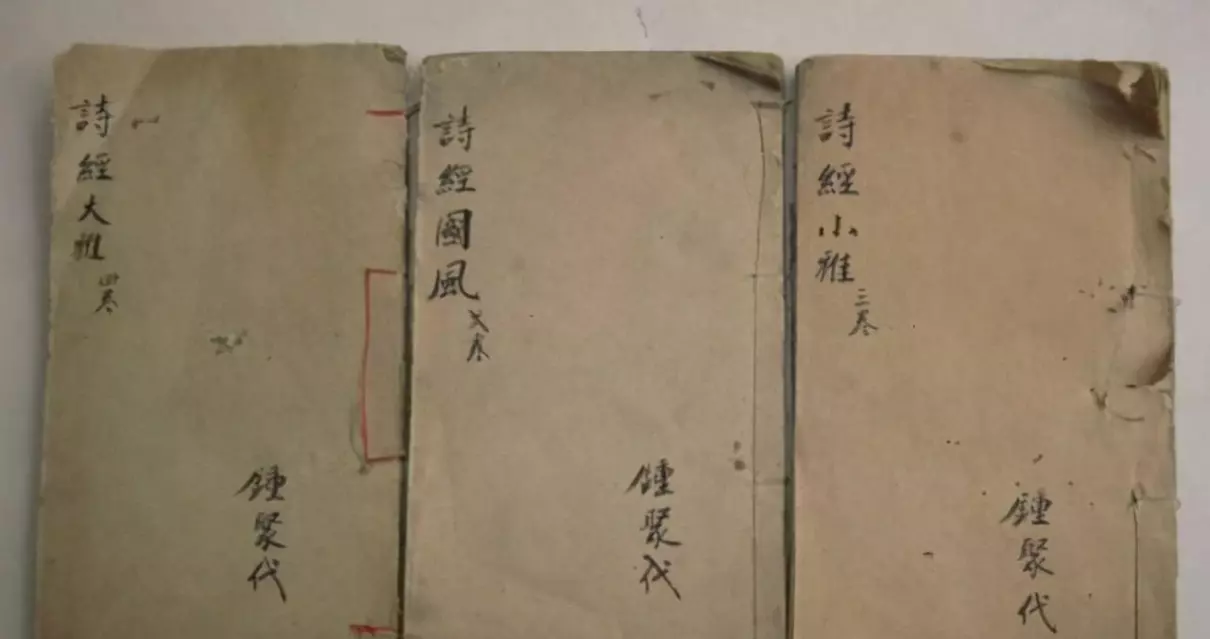 詩經大雅
四卷
鍾聚代
詩經國風
弍卷
鍾聚代
詩經小雅
三卷
鍾聚代